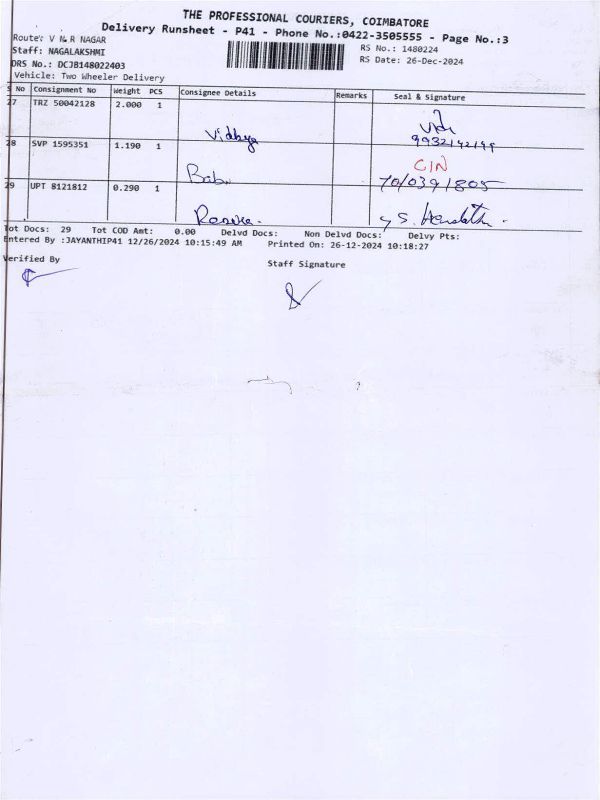 THE PROFESSIONAL COURIERS, COIMBATORE
Delivery Runsheet - P41 - Phone No.:0422-3505555 - Page No.:3
Route: V N R NAGAR
RS No.: 1480224
Staff: NAGALAKSHMI
RS Date: 26-Dec-2024
DRS No.: DCJB148022403
Vehicle: Two Wheeler Delivery
S No Consignment No Weight PCS Consignee Details Remarks Seal & Signature
27 TRZ 50042128 2.000 1
Vidhya
28 SVP 1595351 1.190 1
CIN
Babu
29 UPT 8121812 0.290 1
Tot Docs: 29 Tot COD Amt: 0.00 Delvd Docs: Non Delvd Docs: Delvy Pts:
Entered By :JAYANTHIP41 12/26/2024 10:15:49 AM Printed On: 26-12-2024 10:18:27
Verified By
Staff Signature